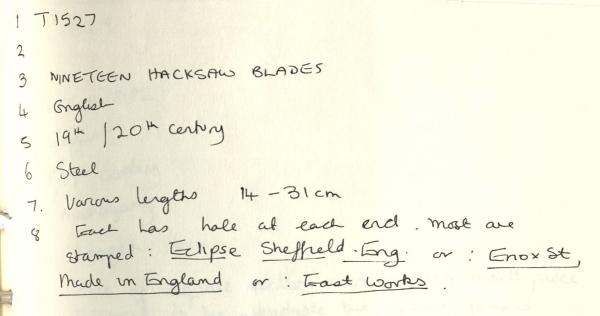 1 T1527
2
3 NINETEEN HACKSAW BLADES
4 English
5 19th / 20th century
6 Steel
7. Various lengths 14 - 31 cm
8 Each has hole at each end. Most are
stamped: Eclipse Sheffield. Eng. or: Enox St,
Made in England or: East Works.